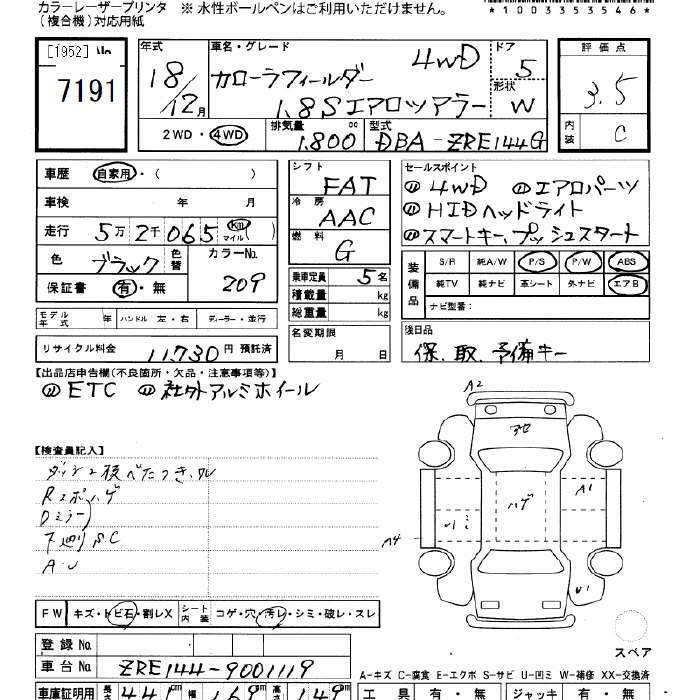 カラーレーザープリンタ ※ 水性ボールペンはご利用いただけません。
(複合機)対応用紙
*1003353546*
[1952]
7191
年式
18/12月
車名・グレード
カローラフィールダー 4WD
1.8Sエアロツアラー
ドア
5
形状
W
評価点
3.5
内装
C
2WD・4WD
排気量
1.800
cc
型式
DBA-ZRE144G
車歴 自家用・( )
車検 年 月
走行 5万2千065 km マイル( )
色 ブラック 色替 カラーNo. 209
保証書 有・無
シフト
FAT
冷房
AAC
燃料
G
乗車定員 5名
積載量 kg
総重量 kg
名変期限
月 日
セールスポイント
4WD エアロパーツ
HIDヘッドライト
スマートキー、プッシュスタート
装備品
S/R 純A/W P/S P/W ABS
純TV 純ナビ 革シート 外ナビ エアB
ナビ型番:
モデル年式 年 ハンドル 左・右 ディーラー・並行
リサイクル料金 11,730 円 預託済
後日品
保、取、予備キー
【出品店申告欄(不良箇所・欠品・注意事項等)】
ETC 社外アルミホイール
【検査員記入】
Dミラー
A.U
A2
A1
A4
U1
ハゲ
FW キズ・トビ石・割レX シート内装 コゲ・穴・汚レ・シミ・破レ・スレ
スペア
登録No
車台No. ZRE144-9001119
A-キズ C-腐食 E-エクボ S-サビ U-凹ミ W-補修 XX-交換済
車庫証明用 長さ 441cm 幅 169 高さ 149
工具 有・無 ジャッキ 有・無